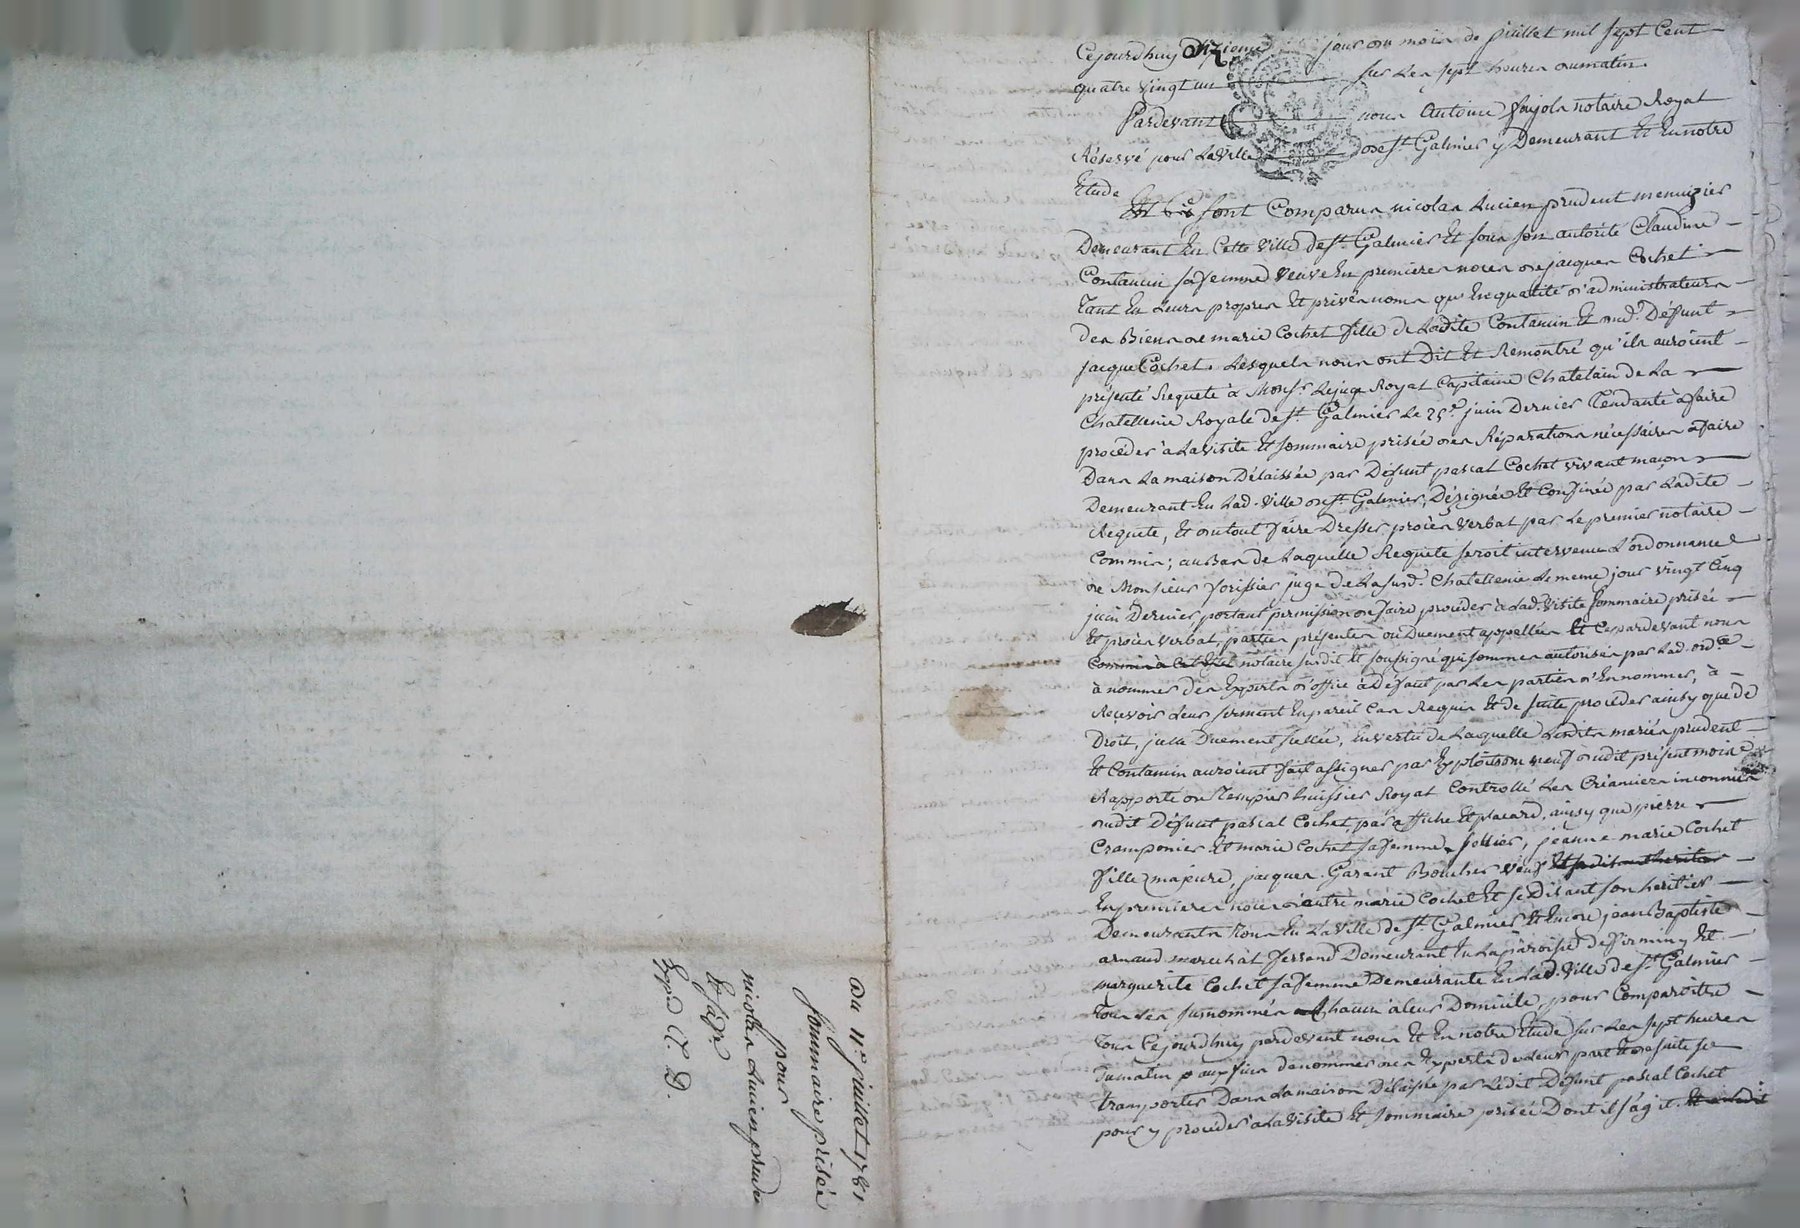 Du 11e juillet 1781
Sommaire prisée
pour
nicolas Lucien prudent
Et sa fe
Exped. C. D.
Cejourdhuy Onzieme jour du mois de juillet mil sept Cent
quatre vingt un sur Les sept heures du matin
Pardevant nous Antoine fayolas notaire Royal
Réservé pour La Ville de st Galmier y Demeurant Et En notre
Etude
sont Comparus nicolas Lucien prudent menuizier
Demeurant En Cette Ville de st Galmier Et sous son autorité Claudine
Contamin sa femme Veuve En premieres noces de jacques Cochet
Tant En Leurs propres Et privés noms qu'En qualité d'administrateurs
des Biens de marie Cochet fille de Ladite Contamin Et dud. Défunt
jacque Cochet. Lesquels nous ont Dit Et Remontré qu'ils auroient
présenté Requete à Monsr Le juge Royal Capitaine Chatelain de La
Chatellenie Royale de st Galmier Le 25e juin Dernier Tendante à faire
proceder à La visite Et sommaire prisée des Réparations nécessaires à faire
Dans La maison Délaissée par Défunt pascal Cochet vivant maçon
Demeurant En Lad. Ville de st Galmier, Désignée Et Confinée par Ladite
Requete, Et du tout faire Dresser procès Verbal par Le premier notaire
Commis; au Bas de Laquelle Requete seroit intervenue L'ordonnance
de Monsieur forissier juge de La susd. Chatellenie Le meme jour vingt Cinq
juin Dernier portant permission de faire proceder à Lad. Visite sommaire prisée
Et procès verbal, parties présentes ou Duement appellées Et Ce pardevant nous
notaire susdit Et soussigné qui sommes autorisés par Lad. ordce
à nommer des Experts d'office à Défaut par Les parties d'En nommer, à
Recevoir Leur serment En pareil Cas Requis Et de suite proceder ainsy que de
Droit, icelle Duement scellée, En vertu de Laquelle Lesdits mariés prudent
Et Contamin auroient fait assigner par Exploits du neuf dudit présent mois
Rapporté de Tempier huissier Royal Controllé Les Créanciers inconnus
dudit Défunt pascal Cochet, par affiche Et placard, ainsy que pierre
Cramponier Et marie Cochet sa femme, sellier, jeanne marie Cochet
fille majeure, jacques Garant Boucher Veuf
En premieres noces d'autre marie Cochet Et se Disant son heritier
Demeurants Tous En La Ville de st Galmier Et Encore jean Baptiste
arnaud marechal ferrand Demeurant En La paroisse de firminy Et
marguerite Cochet sa femme Demeurante En Lad. Ville de st Galmier
Tous Les susnommés Chacun à leur Domicile, pour Comparoitre
Tous Cejourdhuy pardevant nous Et En notre Etude sur Les sept heures
Du matin aux fins de nommer des Experts de Leur part Et de suite se
transporter Dans La maison Délaissée par Ledit Défunt pascal Cochet
pour y proceder à La Visite Et sommaire prisée Dont il s'agit.